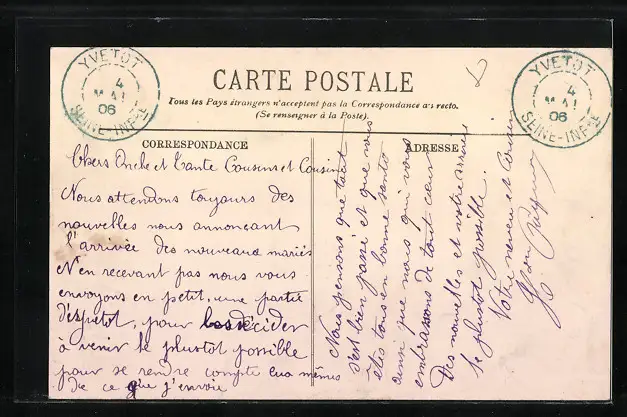 YVETOT
4
MAI
06
SEINE-INFRE
CARTE POSTALE
Tous les Pays étrangers n'acceptent pas la Correspondance au recto.
(Se renseigner à la Poste).
YVETOT
4
MAI
06
SEINE-INFRE
CORRESPONDANCE
Chers Oncle et Tante Cousins et Cousine
Nous attendons toujours des
nouvelles nous annoncant
l'arrivée des nouveaux mariés
N'en recevant pas nous vous
envoyons en petit, une partie
d'Yvetot, pour les décider
à venir le plustot possible
pour se rendre compte eux mêmes
de ce que j'envoie
ADRESSE
Nous pensons que tout
s'est bien passé et que vous
êtes tous en bonne santé
ainsi que nous qui vous
embrassons de tout cœur
Des nouvelles et votre arrivée
le plustot possible.
Votre neveu et Cousin